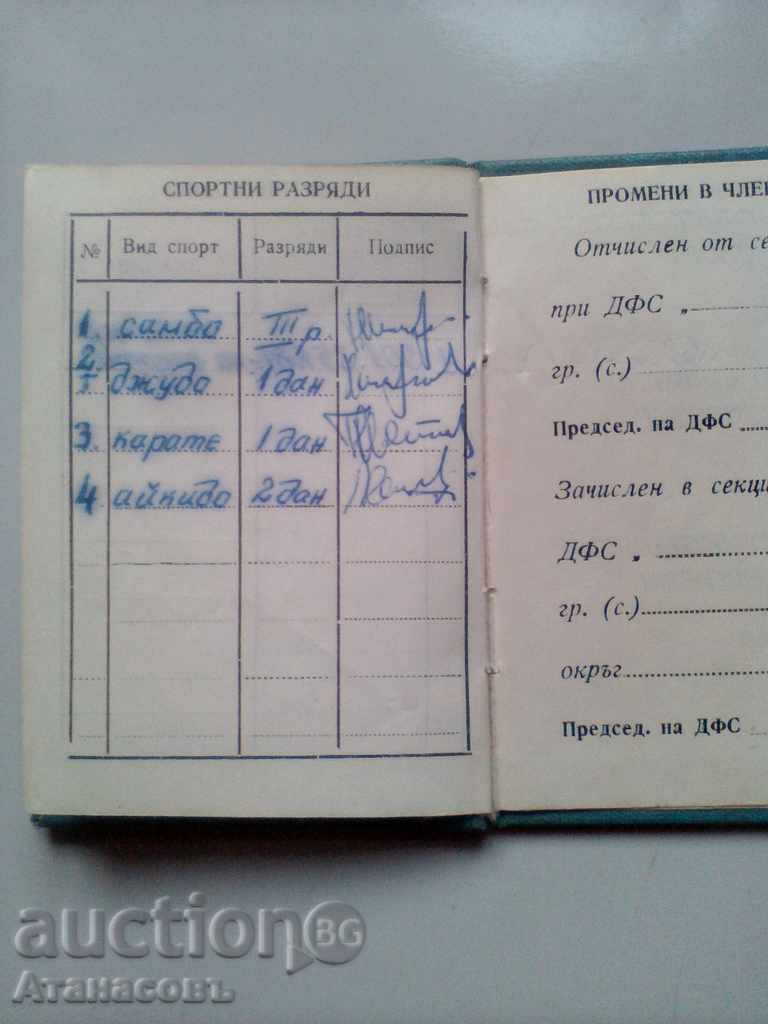 СПОРТНИ РАЗРЯДИ
№ Вид спорт Разряди Подпис
1. самбо III р.
2. джудо 1 дан
3. карате 1 дан
4 айкидо 2 дан
ПРОМЕНИ В ЧЛЕ
Отчислен от се
при ДФС „
гр. (с.)
Председ. на ДФС
Зачислен в секци
ДФС „
гр. (с.)
окръг
Председ. на ДФС
auction BG
Атанасовъ